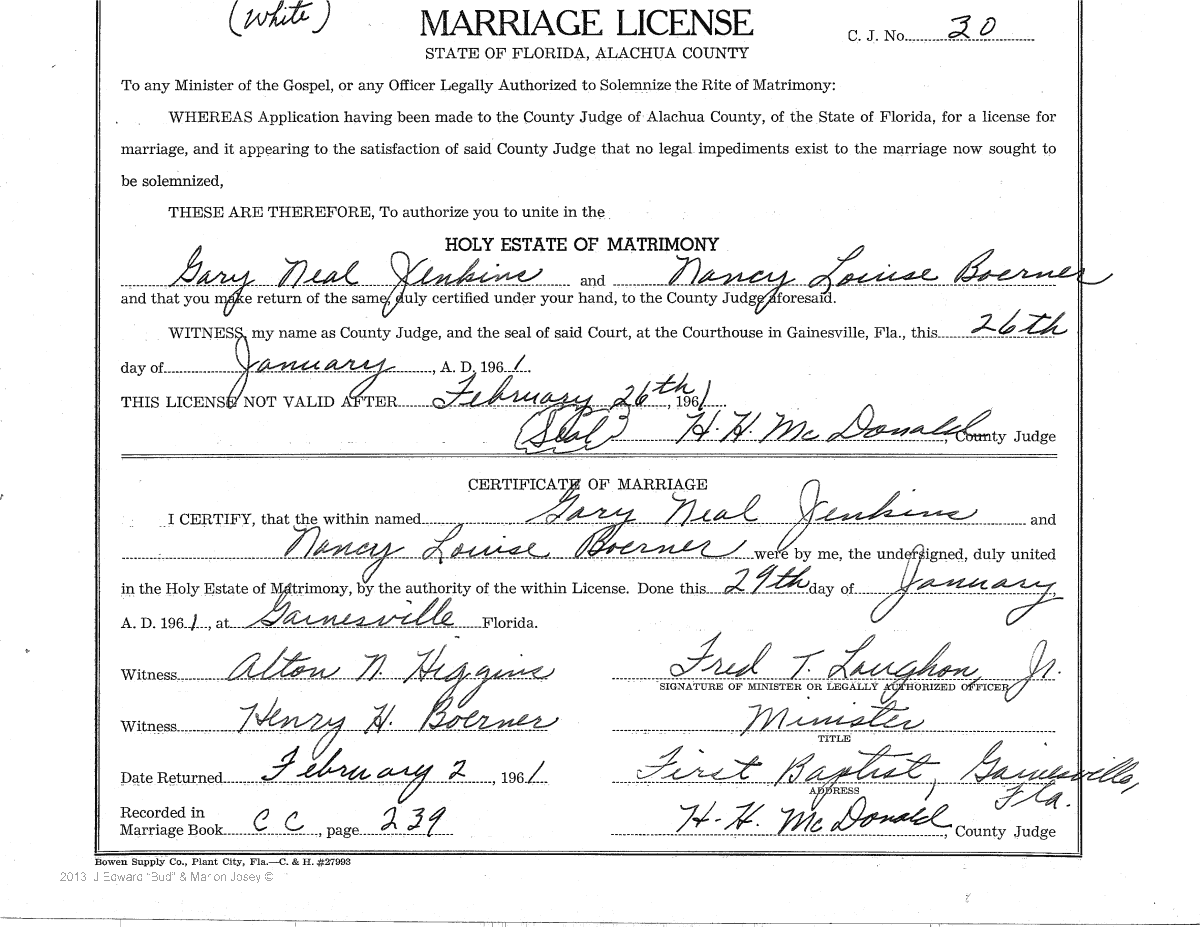 (White)
MARRIAGE LICENSE
C. J. No. 30
STATE OF FLORIDA, ALACHUA COUNTY
To any Minister of the Gospel, or any Officer Legally Authorized to Solemnize the Rite of Matrimony:
WHEREAS Application having been made to the County Judge of Alachua County, of the State of Florida, for a license for
marriage, and it appearing to the satisfaction of said County Judge that no legal impediments exist to the marriage now sought to
be solemnized,
THESE ARE THEREFORE, To authorize you to unite in the
HOLY ESTATE OF MATRIMONY
Gary Neal Jenkins and Nancy Louise Boerner
and that you make return of the same, duly certified under your hand, to the County Judge aforesaid.
WITNESS, my name as County Judge, and the seal of said Court, at the Courthouse in Gainesville, Fla., this 26th
day of January, A. D. 1961.
THIS LICENSE NOT VALID AFTER February 26th, 1961
(Seal) H. H. McDonald, County Judge
CERTIFICATE OF MARRIAGE
I CERTIFY, that the within named Gary Neal Jenkins and
Nancy Louise Boerner were by me, the undersigned, duly united
in the Holy Estate of Matrimony, by the authority of the within License. Done this 29th day of January,
A. D. 1961, at Gainesville Florida.
Witness Alton N. Higgins Fred T. Laughon, Jr.
SIGNATURE OF MINISTER OR LEGALLY AUTHORIZED OFFICER
Witness Henry H. Boerner Minister
TITLE
Date Returned February 2, 1961 First Baptist, Gainesville, Fla.
ADDRESS
Recorded in
Marriage Book CC, page 239 H. H. McDonald, County Judge
Bowen Supply Co., Plant City, Fla.—C. & H. #27993
2013 J Edward "Bud" & Marion Josey ©